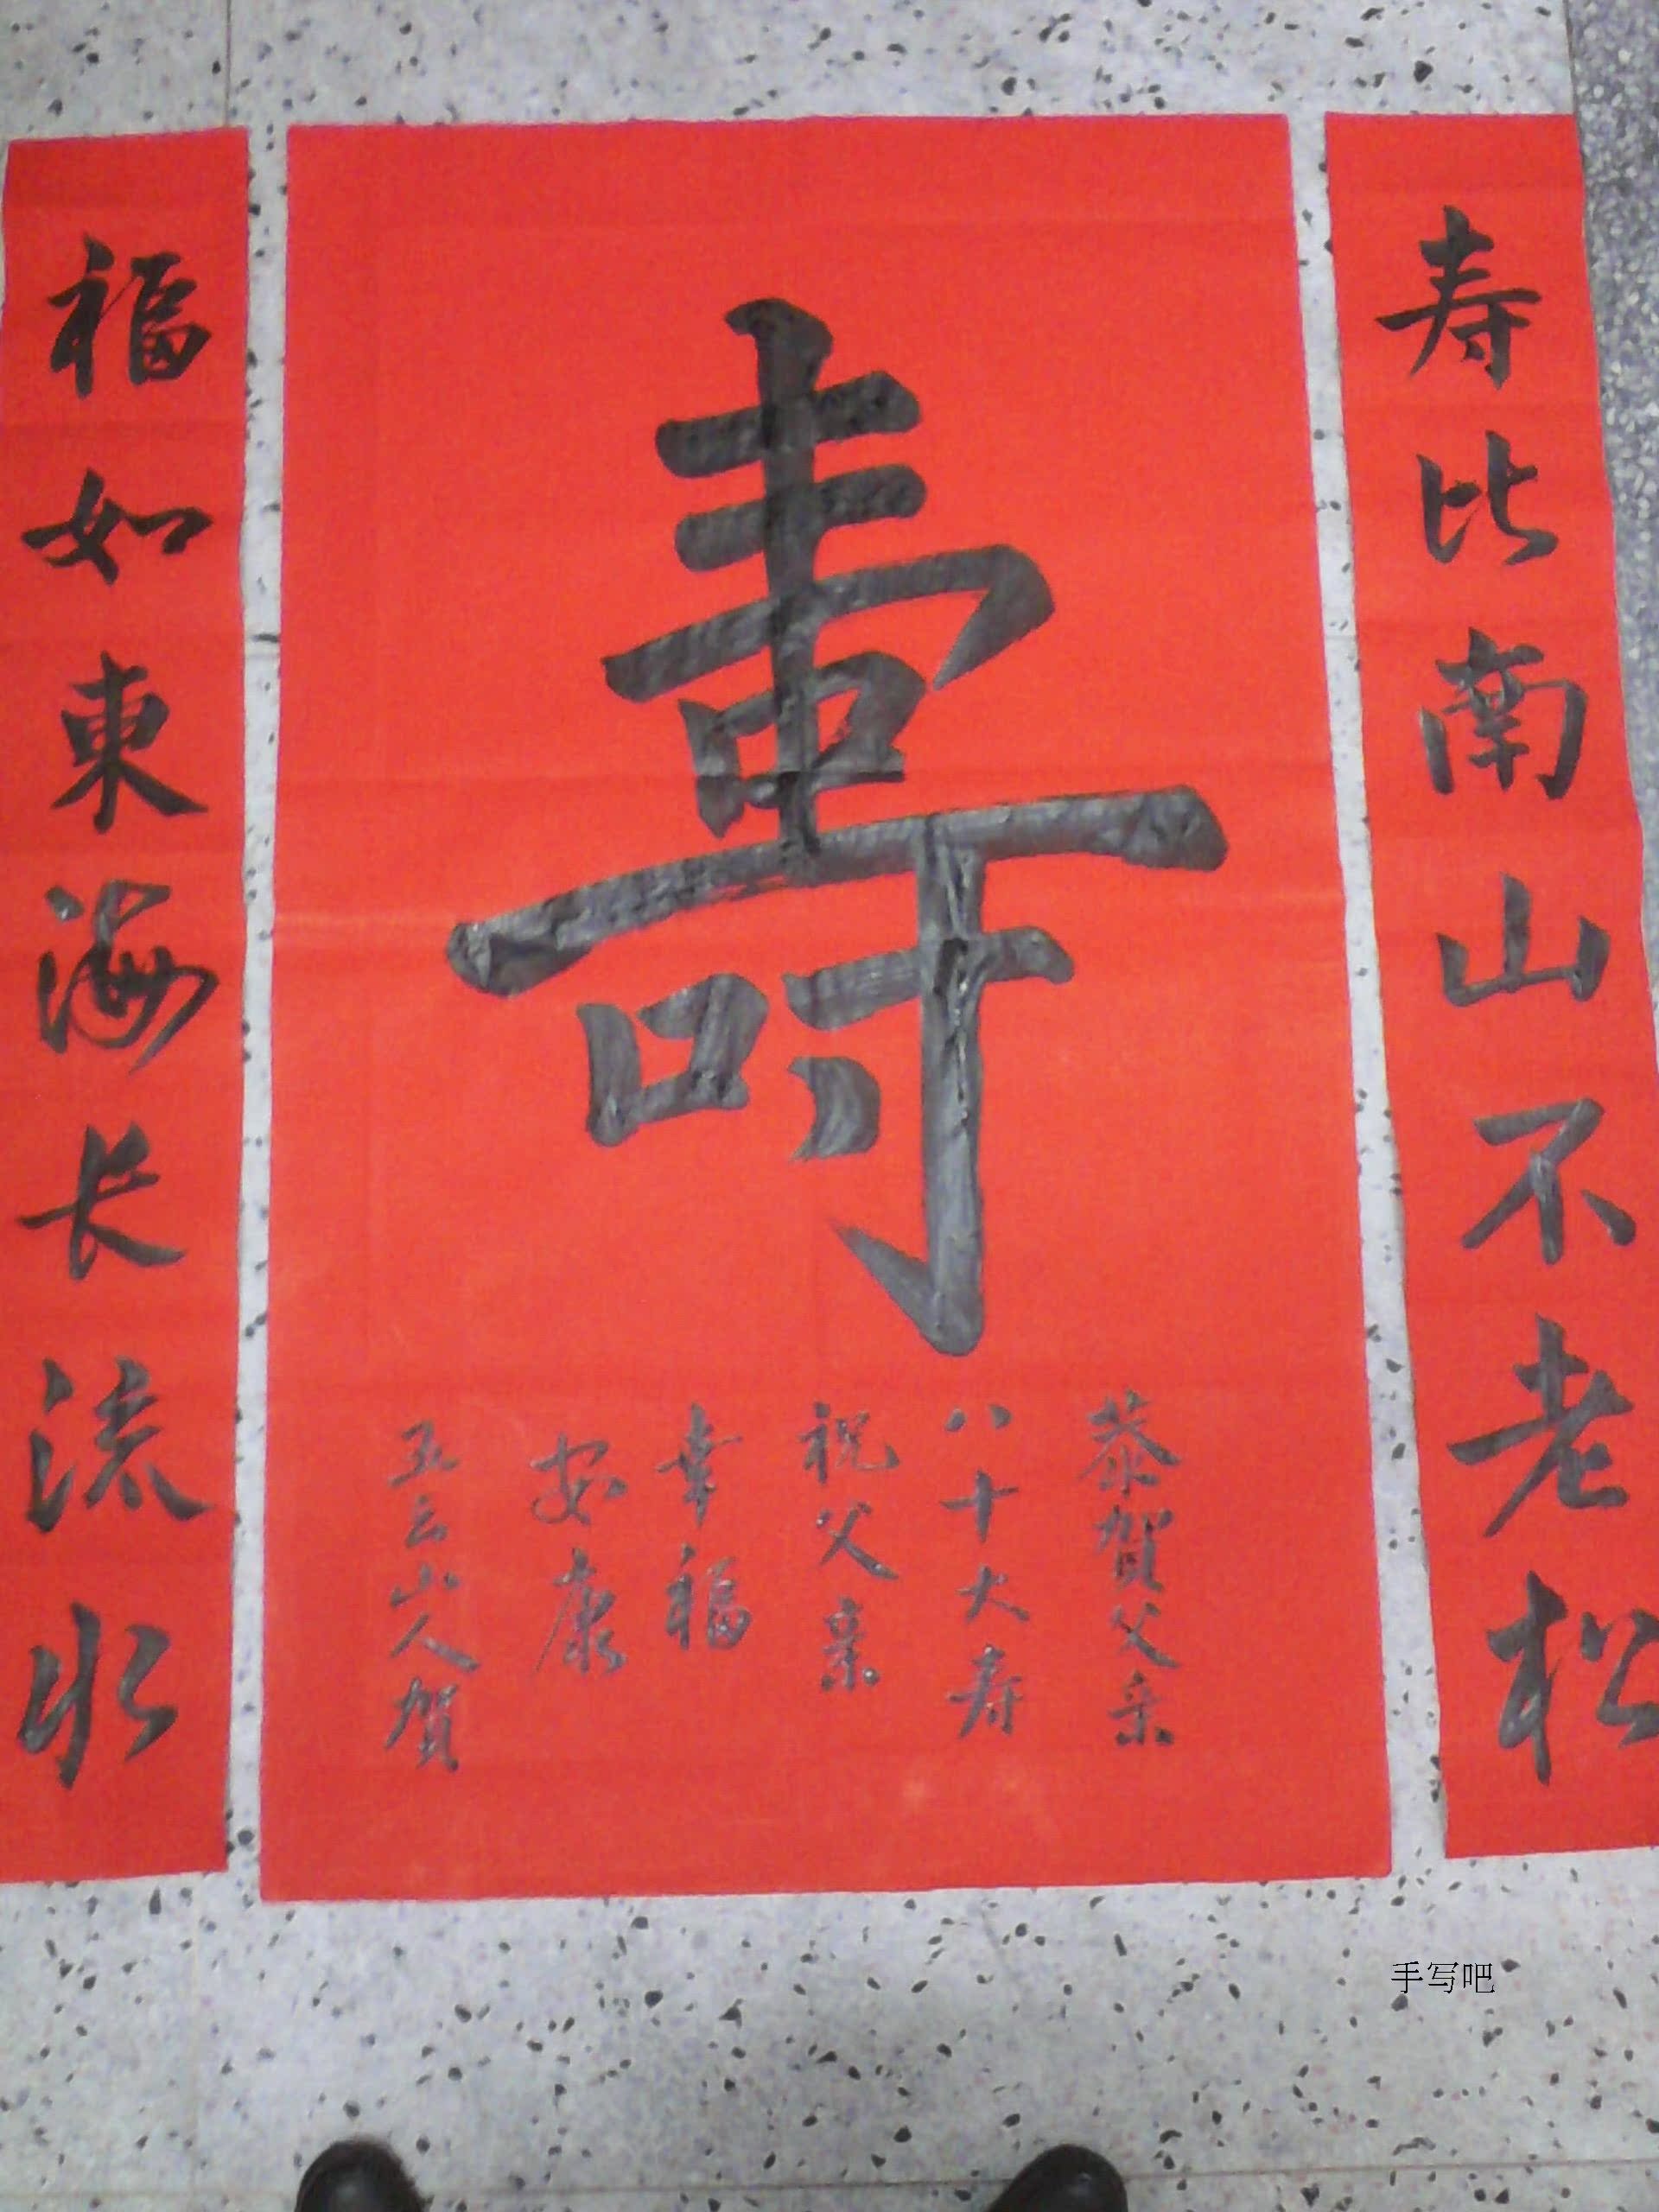 寿比南山不老松
壽
恭賀父亲
八十大寿
祝父亲
幸福
安康
五云山人賀
福如東海长流水
手写吧